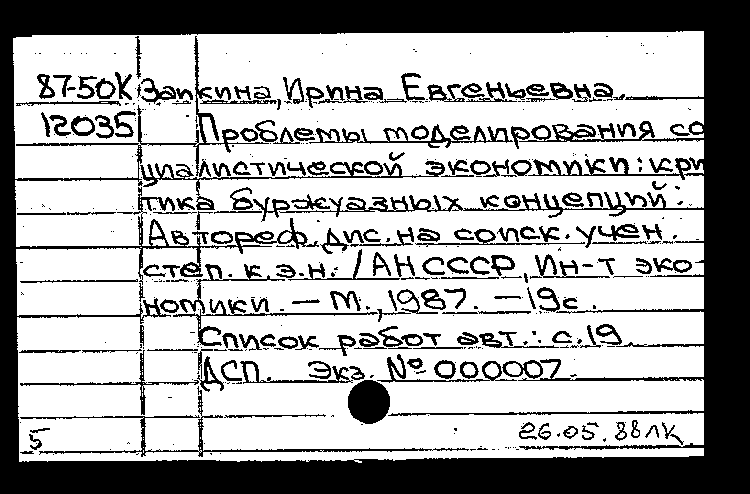 87-50К Запкина, Ирина Евгеньевна.
12035 Проблемы моделирования со
циалистической экономики: кри
тика буржуазных концепций:
Автореф. дис. на соиск. учен.
степ. к.э.н. / АН СССР, Ин-т эко-
номики. — М., 1987. — 19с.
Список работ авт.: с. 19.
ДСП. Экз. № 000007.
5 26.05.88 ЛК